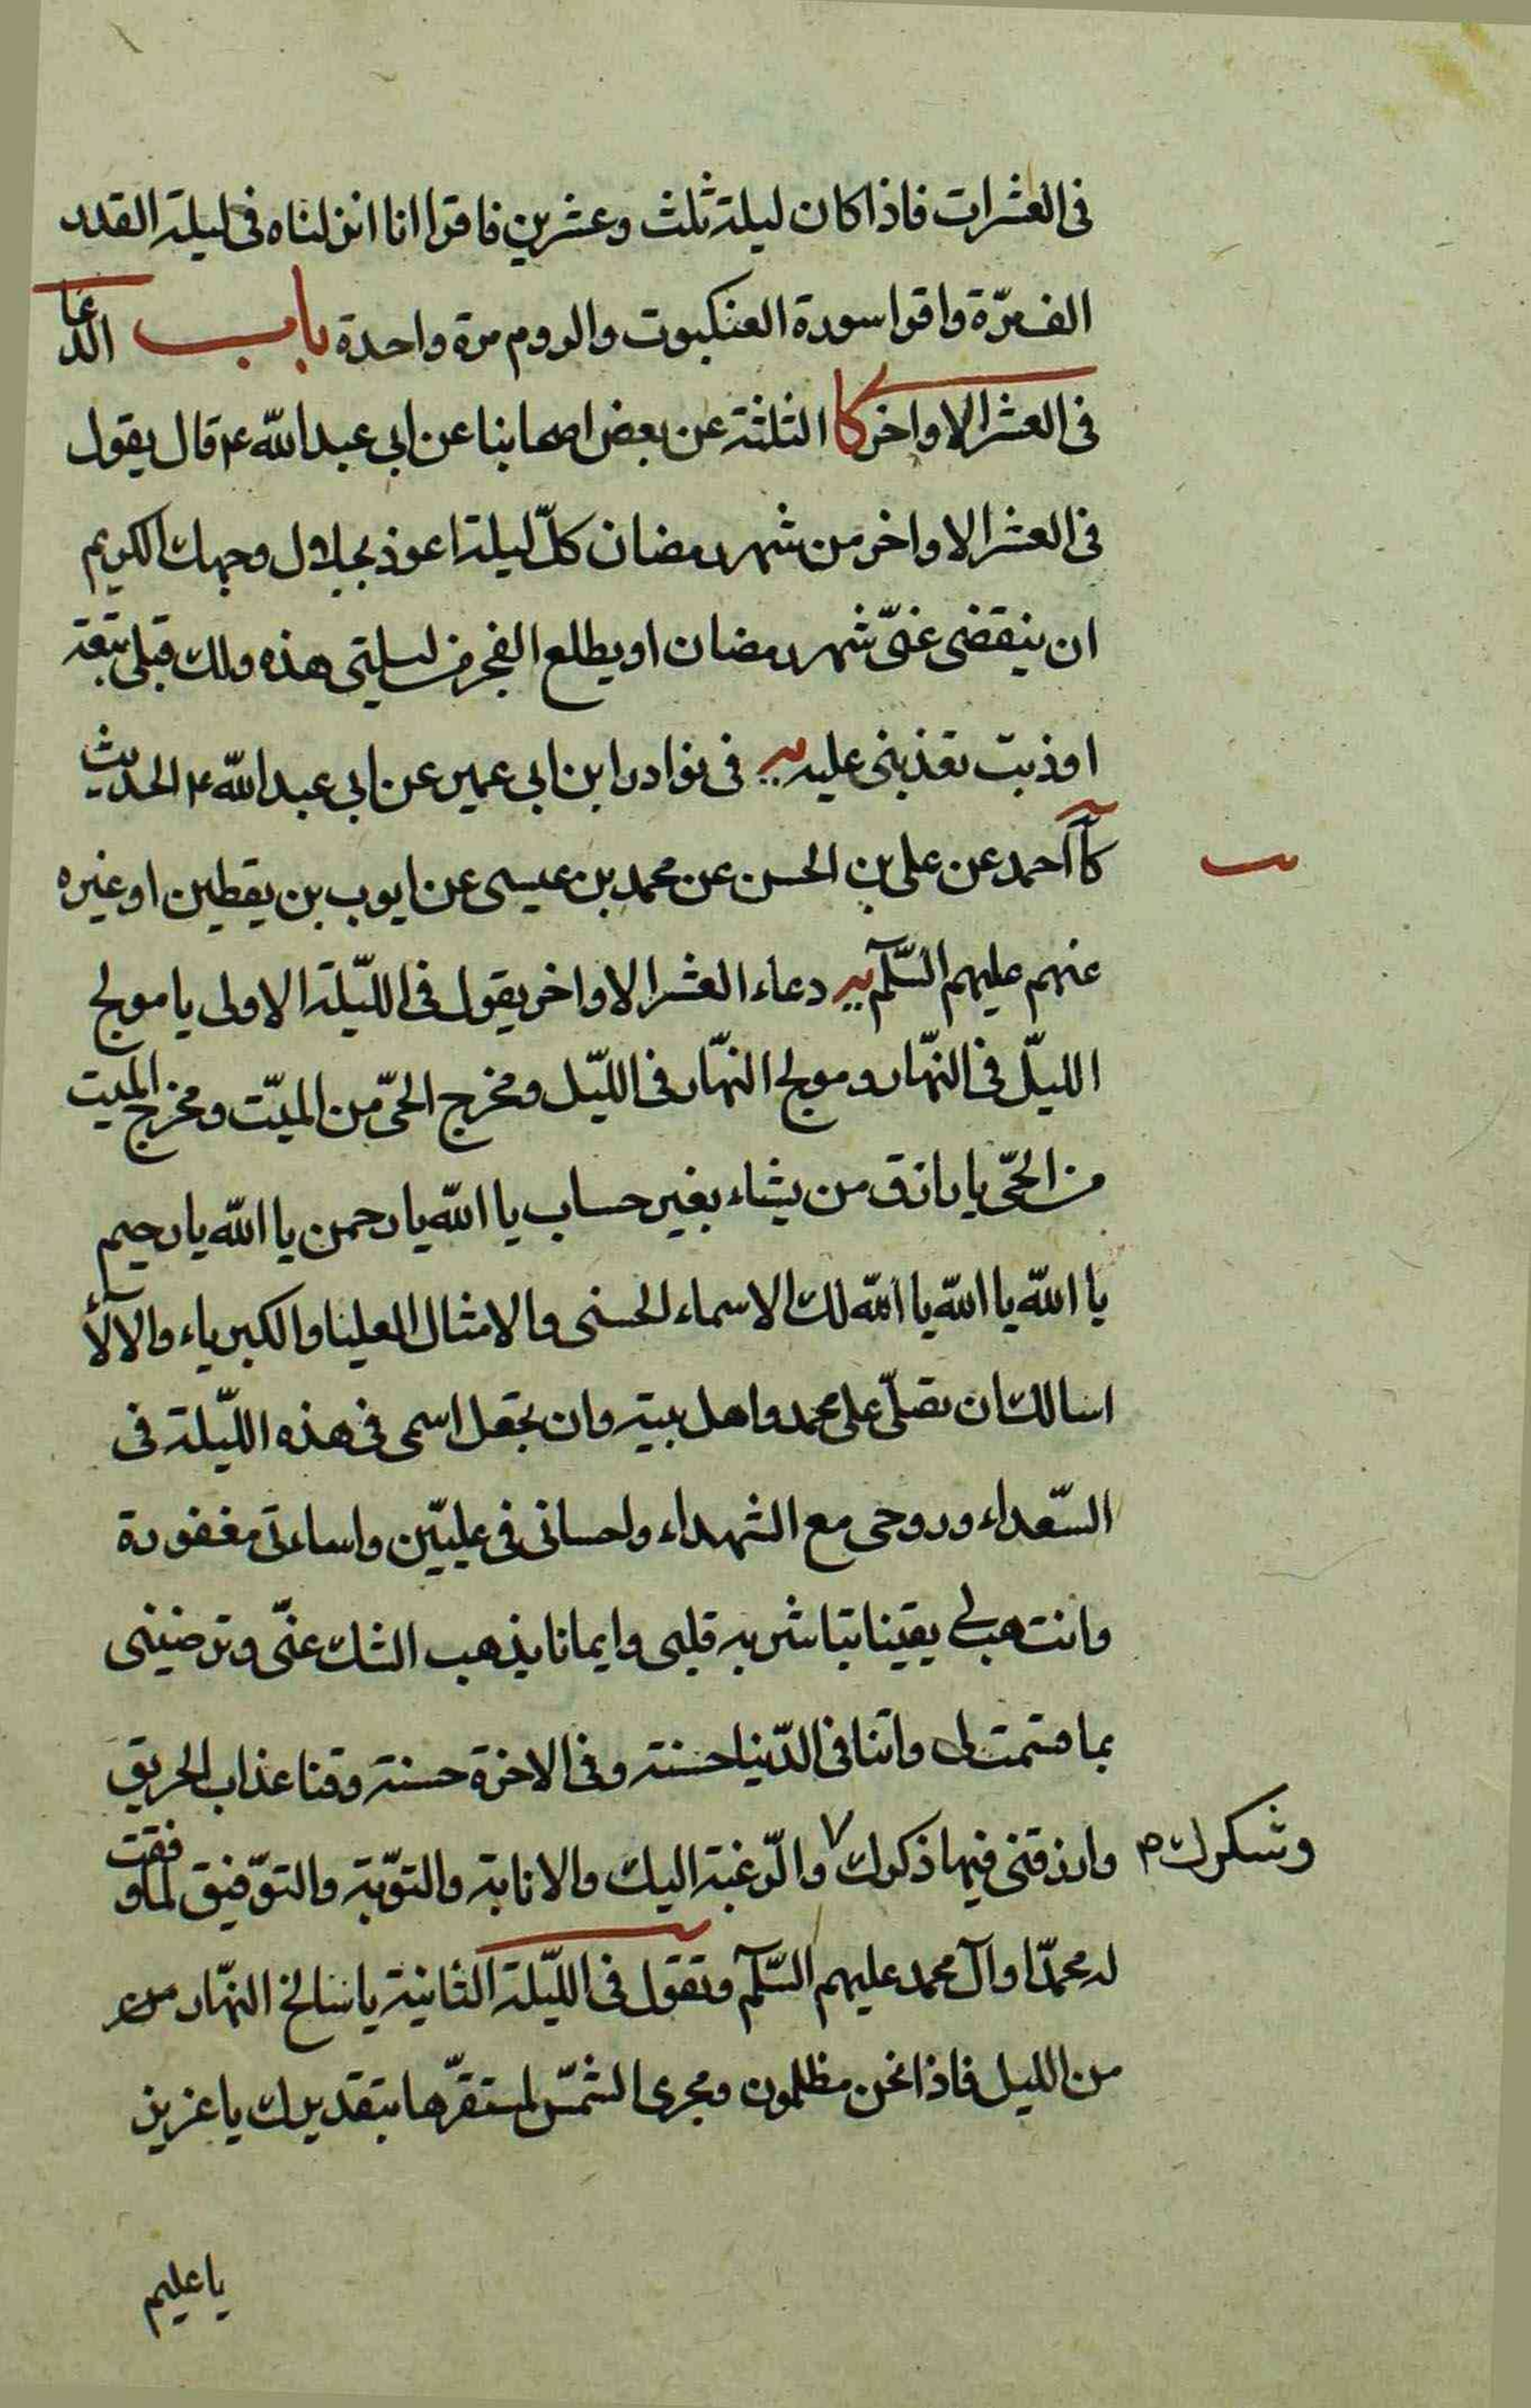 فى العشرات فاذا كان ليلة ثلث وعشرين فاقرا انا انزلناه فى ليلة القدر
الف مرّة واقرا سورة العنكبوت والروم مرة واحدة باب الدعا
فى العشر الاواخر كا الثلثة عن بعض اصحابنا عن ابى عبد الله ع قال يقول
فى العشر الاواخر من شهر رمضان كلّ ليلة اعوذ بجلال وجهك الكريم
ان ينقضى عنّى شهر رمضان او يطلع الفجر من ليلتى هذه ولك قبلى تبعة
او ذنب تعذبنى عليه يه فى نوادر ابن ابى عمير عن ابى عبد الله ع الحديث
كا احمد عن على بن الحسن عن محمد بن عيسى عن ايوب بن يقطين او غيره
عنهم عليهم السّلم يه دعاء العشر الاواخر يقول فى اللّيلة الاولى يا مولج
الليّل فى النهّار ومولج النهّار فى الليّل ومخرج الحىّ من الميّت ومخرج الميت
من الحىّ يا رازق من يشاء بغير حساب يا الله يا رحمن يا الله يا رحيم
يا الله يا الله يا الله لك الاسماء الحسنى والامثال العليا والكبرياء والالآء
اسالك ان تصلّى على محمد واهل بيته وان تجعل اسمى فى هذه اللّيلة فى
السّعداء وروحى مع الشهداء واحسانى فى عليّين واساءتى مغفورة
وان تهب لى يقينا تباشر به قلبى وايمانا يذهب الشك عنّى وترضينى
بما قسمت لى واتنا فى الدّنيا حسنة وفى الاخرة حسنة وقنا عذاب الحريق
وارزقنى فيها ذكرك والرّغبة اليك والانابة والتوّبة والتوّفيق لما وفقت
وشكرك
له محمّدا وآل محمد عليهم السّلم وتقول فى اللّيلة الثانية يا سالخ النهّار من
من الليل فاذا نحن مظلمون ومجرى الشمّس لمستقرّها بتقديرك يا عزيز
يا عليم